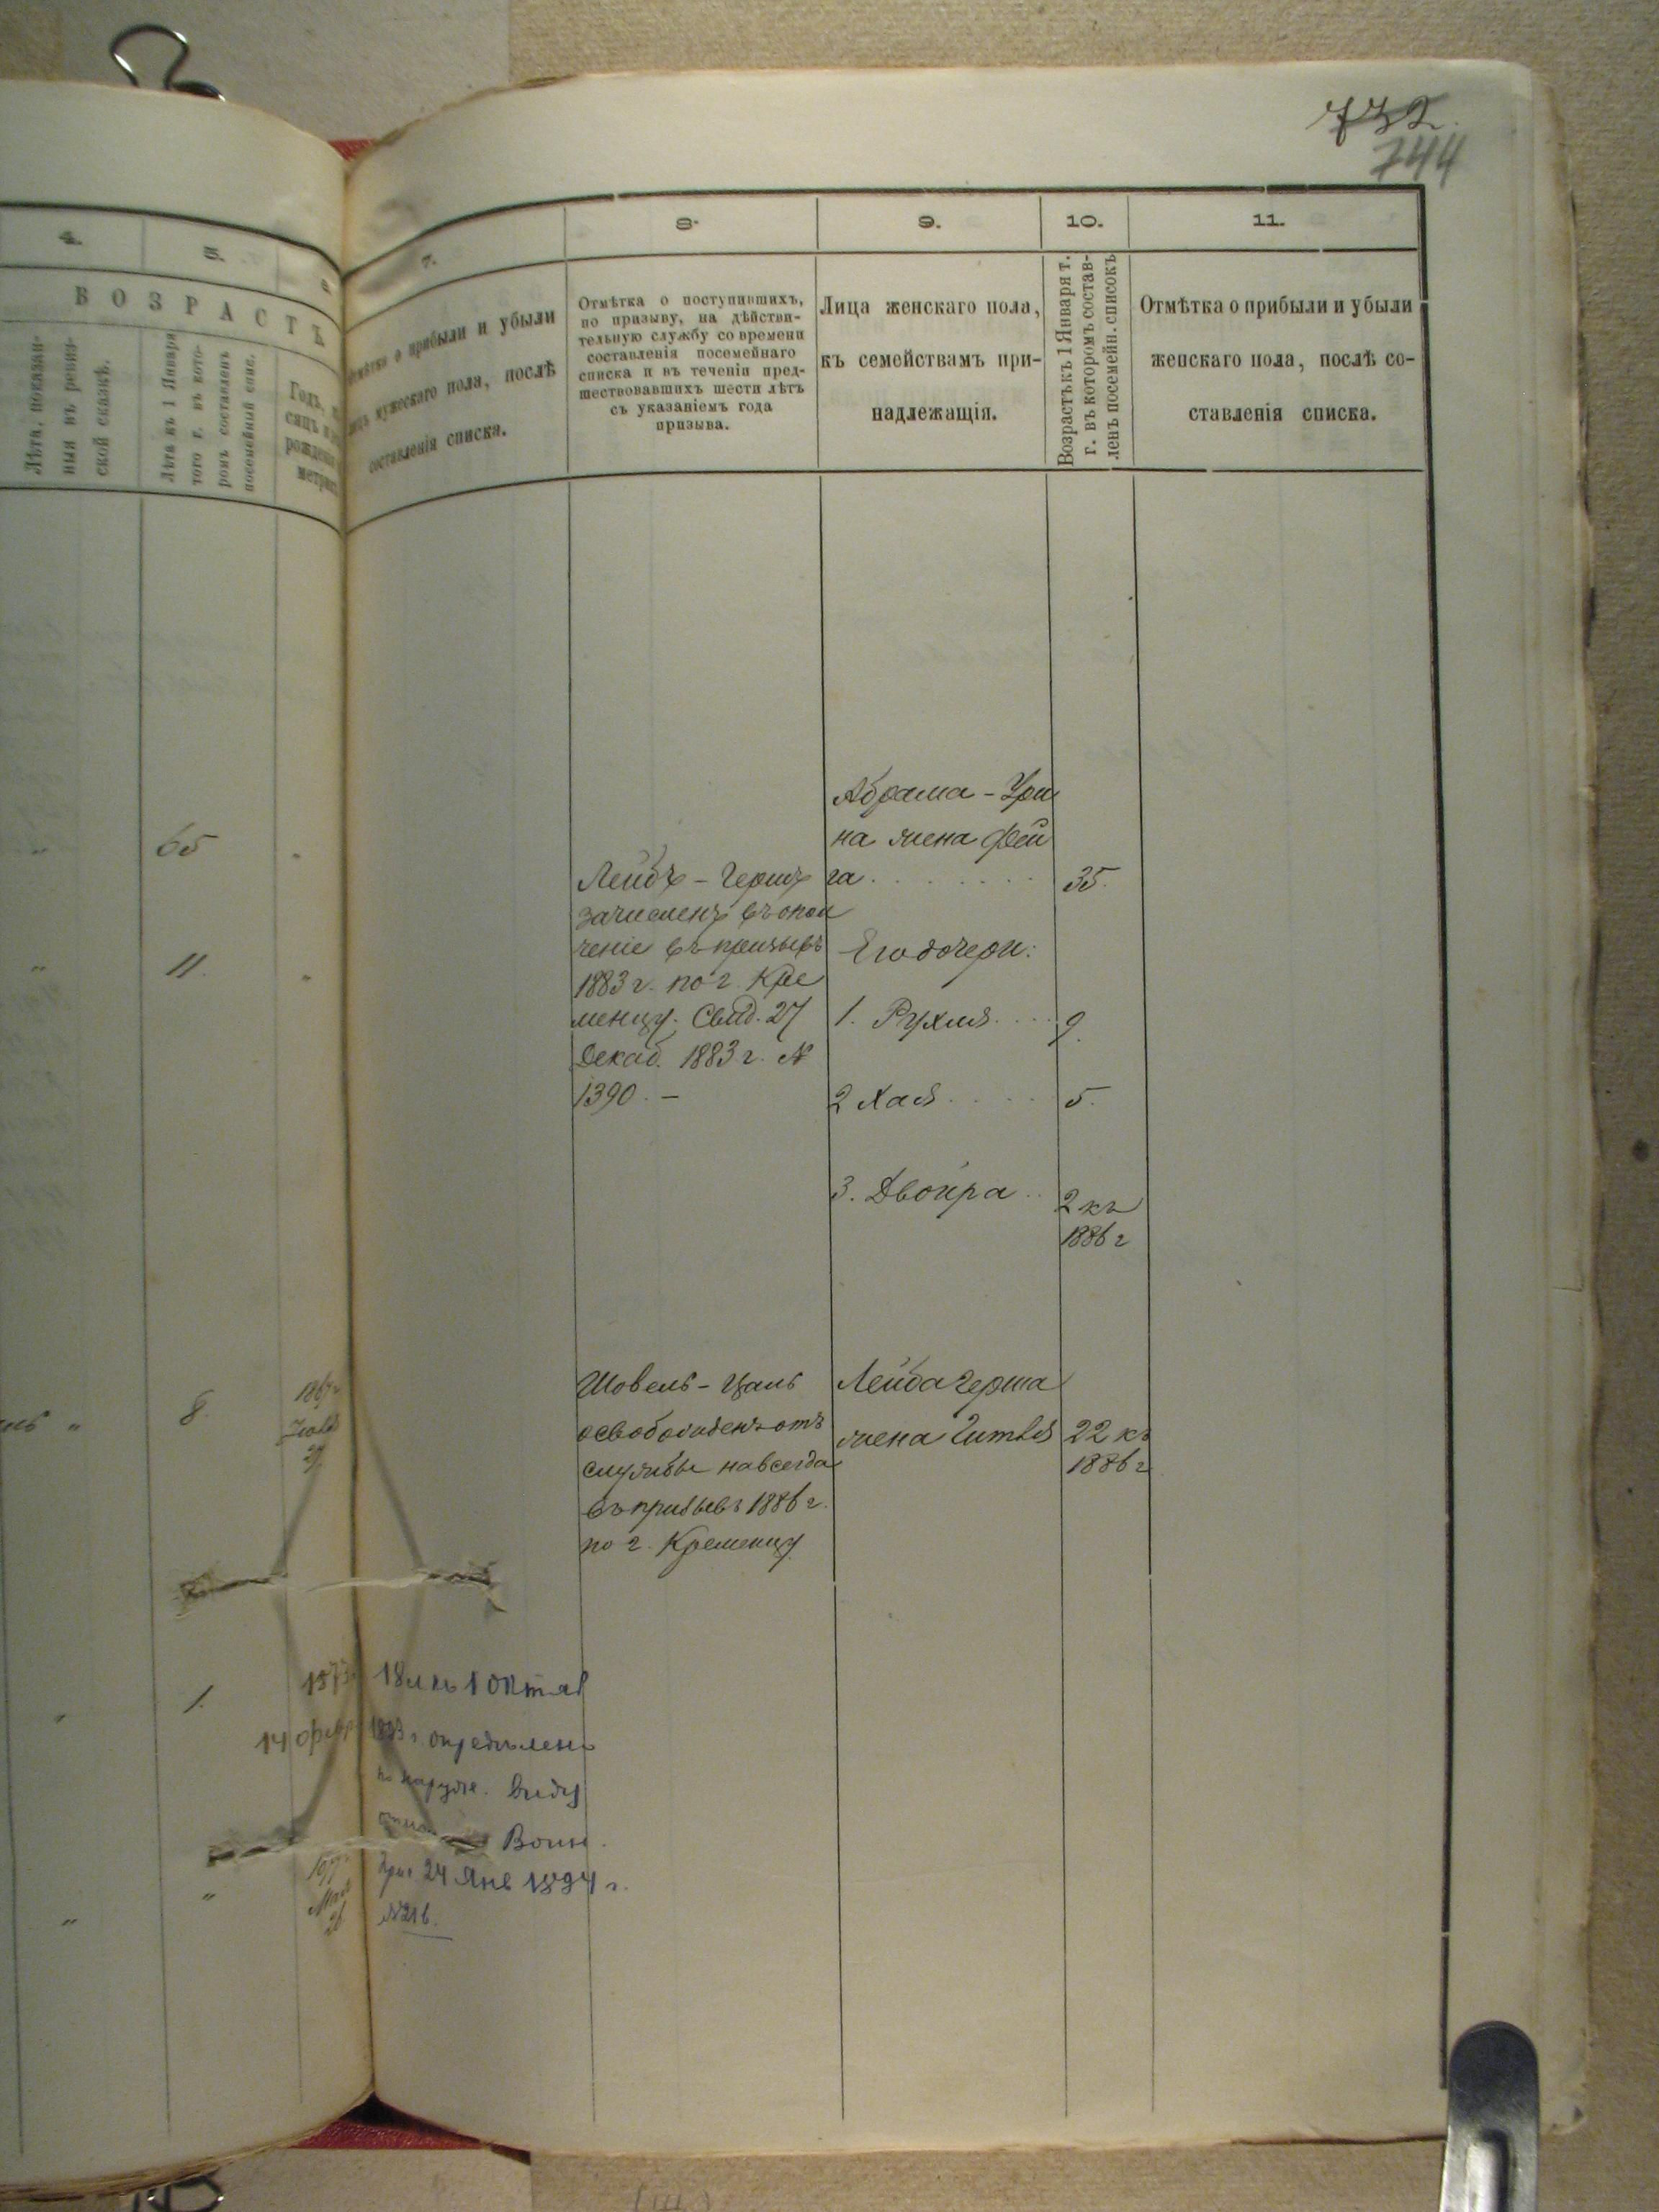 732.
744
4.
5.
7.
8.
9.
10.
11.
ВОЗРАСТЪ
Лѣта, показан-
ныя въ ревиз-
ской сказкѣ.
Лѣта къ 1 Января
того г. въ кото-
ромъ составленъ
посемейный спис.
Годъ,
рожден
метрик
о прибыли и убыли
мужескаго пола, послѣ
составленія списка.
Отмѣтка о поступившихъ,
по призыву, на дѣйстви-
тельную службу со времени
составленія посемейнаго
списка и въ теченіи пред-
шествовавшихъ шести лѣтъ
съ указаніемъ года
призыва.
Лица женскаго пола,
къ семействамъ при-
надлежащія.
Возрастъ къ 1 Января т.
г. въ которомъ состав-
ленъ посемейн. списокъ
Отмѣтка о прибыли и убыли
женскаго пола, послѣ со-
ставленія списка.
Абрама-Ури
на жена Фей
га 35.
" 65
Лейбъ-Гершъ
зачисленъ въ опол
ченіе въ призывъ
1883 г. по г. Кре
менцу. Свид. 27
Декаб. 1883 г. №
1390. —
" 11.
Его дочери:
1. Рухля 9.
2 Хая 5.
3. Двойра 2 къ
1886 г
" 8.
Шовель-Цаль
освобожденъ отъ
службы навсегда
въ призывъ 1886 г.
по г. Кременцу
Лейба Герша
жена Гитля 22 къ
1886 г
1.
14 февр
18 л къ 1 Октяб
1893 г. опредѣленъ
по наружн. виду
Воин.
24 Янв 1894 г.
№ 216.